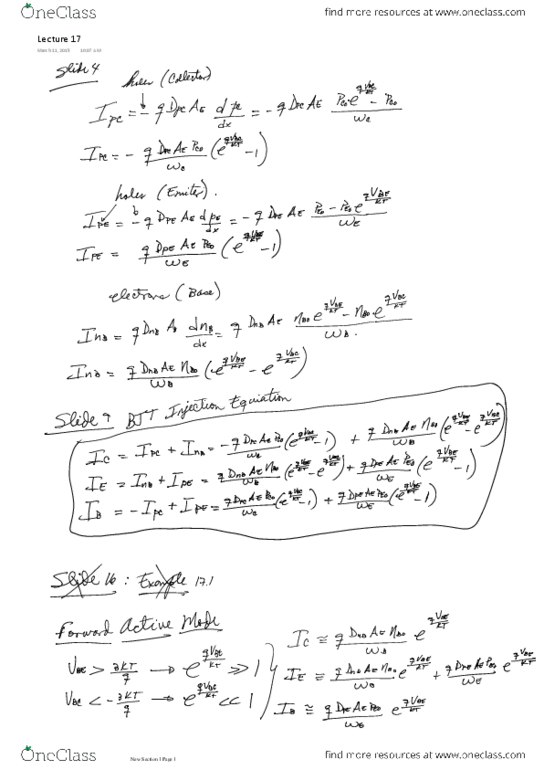 OneClass
find more resources at www.oneclass.com
Lecture 17
Slide 4
holes (Collector)
I_pc = - q D_pc A_E dp_c/dx = - q D_pc A_E (P_c0 e^(qV_BC/kT) - P_c0)/W_c
I_pc = - (q D_pc A_E P_c0)/W_c (e^(qV_BC/kT) - 1)
holes (Emitter).
I_PE = - q D_PE A_E dp_E/dx = - q D_PE A_E (P_E0 - P_E0 e^(qV_BE/kT))/W_E
I_PE = (q D_PE A_E P_E0)/W_E (e^(qV_BE/kT) - 1)
electrons (Base)
I_nB = q D_nB A_E dn_B/dx = q D_nB A_E (n_B0 e^(qV_BE/kT) - n_B0 e^(qV_BC/kT))/W_B.
I_nB = (q D_nB A_E n_B0)/W_B (e^(qV_BE/kT) - e^(qV_BC/kT))
Slide 9 BJT Injection Equation
I_C = I_pc + I_nB = - (q D_pc A_E P_c0)/W_c (e^(qV_BC/kT) - 1) + (q D_nB A_E n_B0)/W_B (e^(qV_BE/kT) - e^(qV_BC/kT))
I_E = I_nB + I_PE = (q D_nB A_E n_B0)/W_B (e^(qV_BE/kT) - e^(qV_BC/kT)) + (q D_PE A_E P_E0)/W_E (e^(qV_BE/kT) - 1)
I_B = - I_pc + I_PE = (q D_pc A_E P_c0)/W_c (e^(qV_BC/kT) - 1) + (q D_PE A_E P_E0)/W_E (e^(qV_BE/kT) - 1)
Slide 16 : Example 17.1
Forward Active Mode
V_BE > 3kT/q → e^(qV_BE/kT) >> 1
V_BC < -3kT/q → e^(qV_BC/kT) << 1
I_C ≅ (q D_nB A_E n_B0)/W_B e^(qV_BE/kT)
I_E ≅ (q D_nB A_E n_B0)/W_B e^(qV_BE/kT) + (q D_PE A_E P_E0)/W_E e^(qV_BE/kT)
I_B ≅ (q D_PE A_E P_E0)/W_E e^(qV_BE/kT)
OneClass
New Section 1 Page 1
find more resources at www.oneclass.com